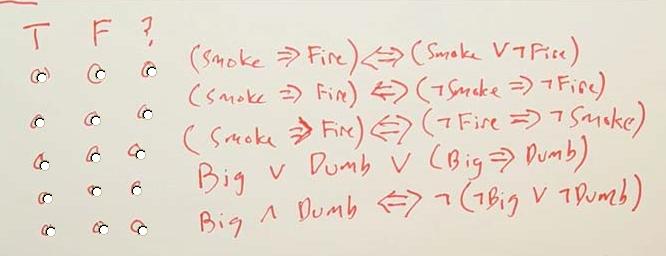 T F ?
(Smoke ⇒ Fire) ⇔ (Smoke ∨ ¬Fire)
(Smoke ⇒ Fire) ⇔ (¬Smoke ⇒ ¬Fire)
(Smoke ⇒ Fire) ⇔ (¬Fire ⇒ ¬Smoke)
Big ∨ Dumb ∨ (Big ⇒ Dumb)
Big ∧ Dumb ⇔ ¬(¬Big ∨ ¬Dumb)